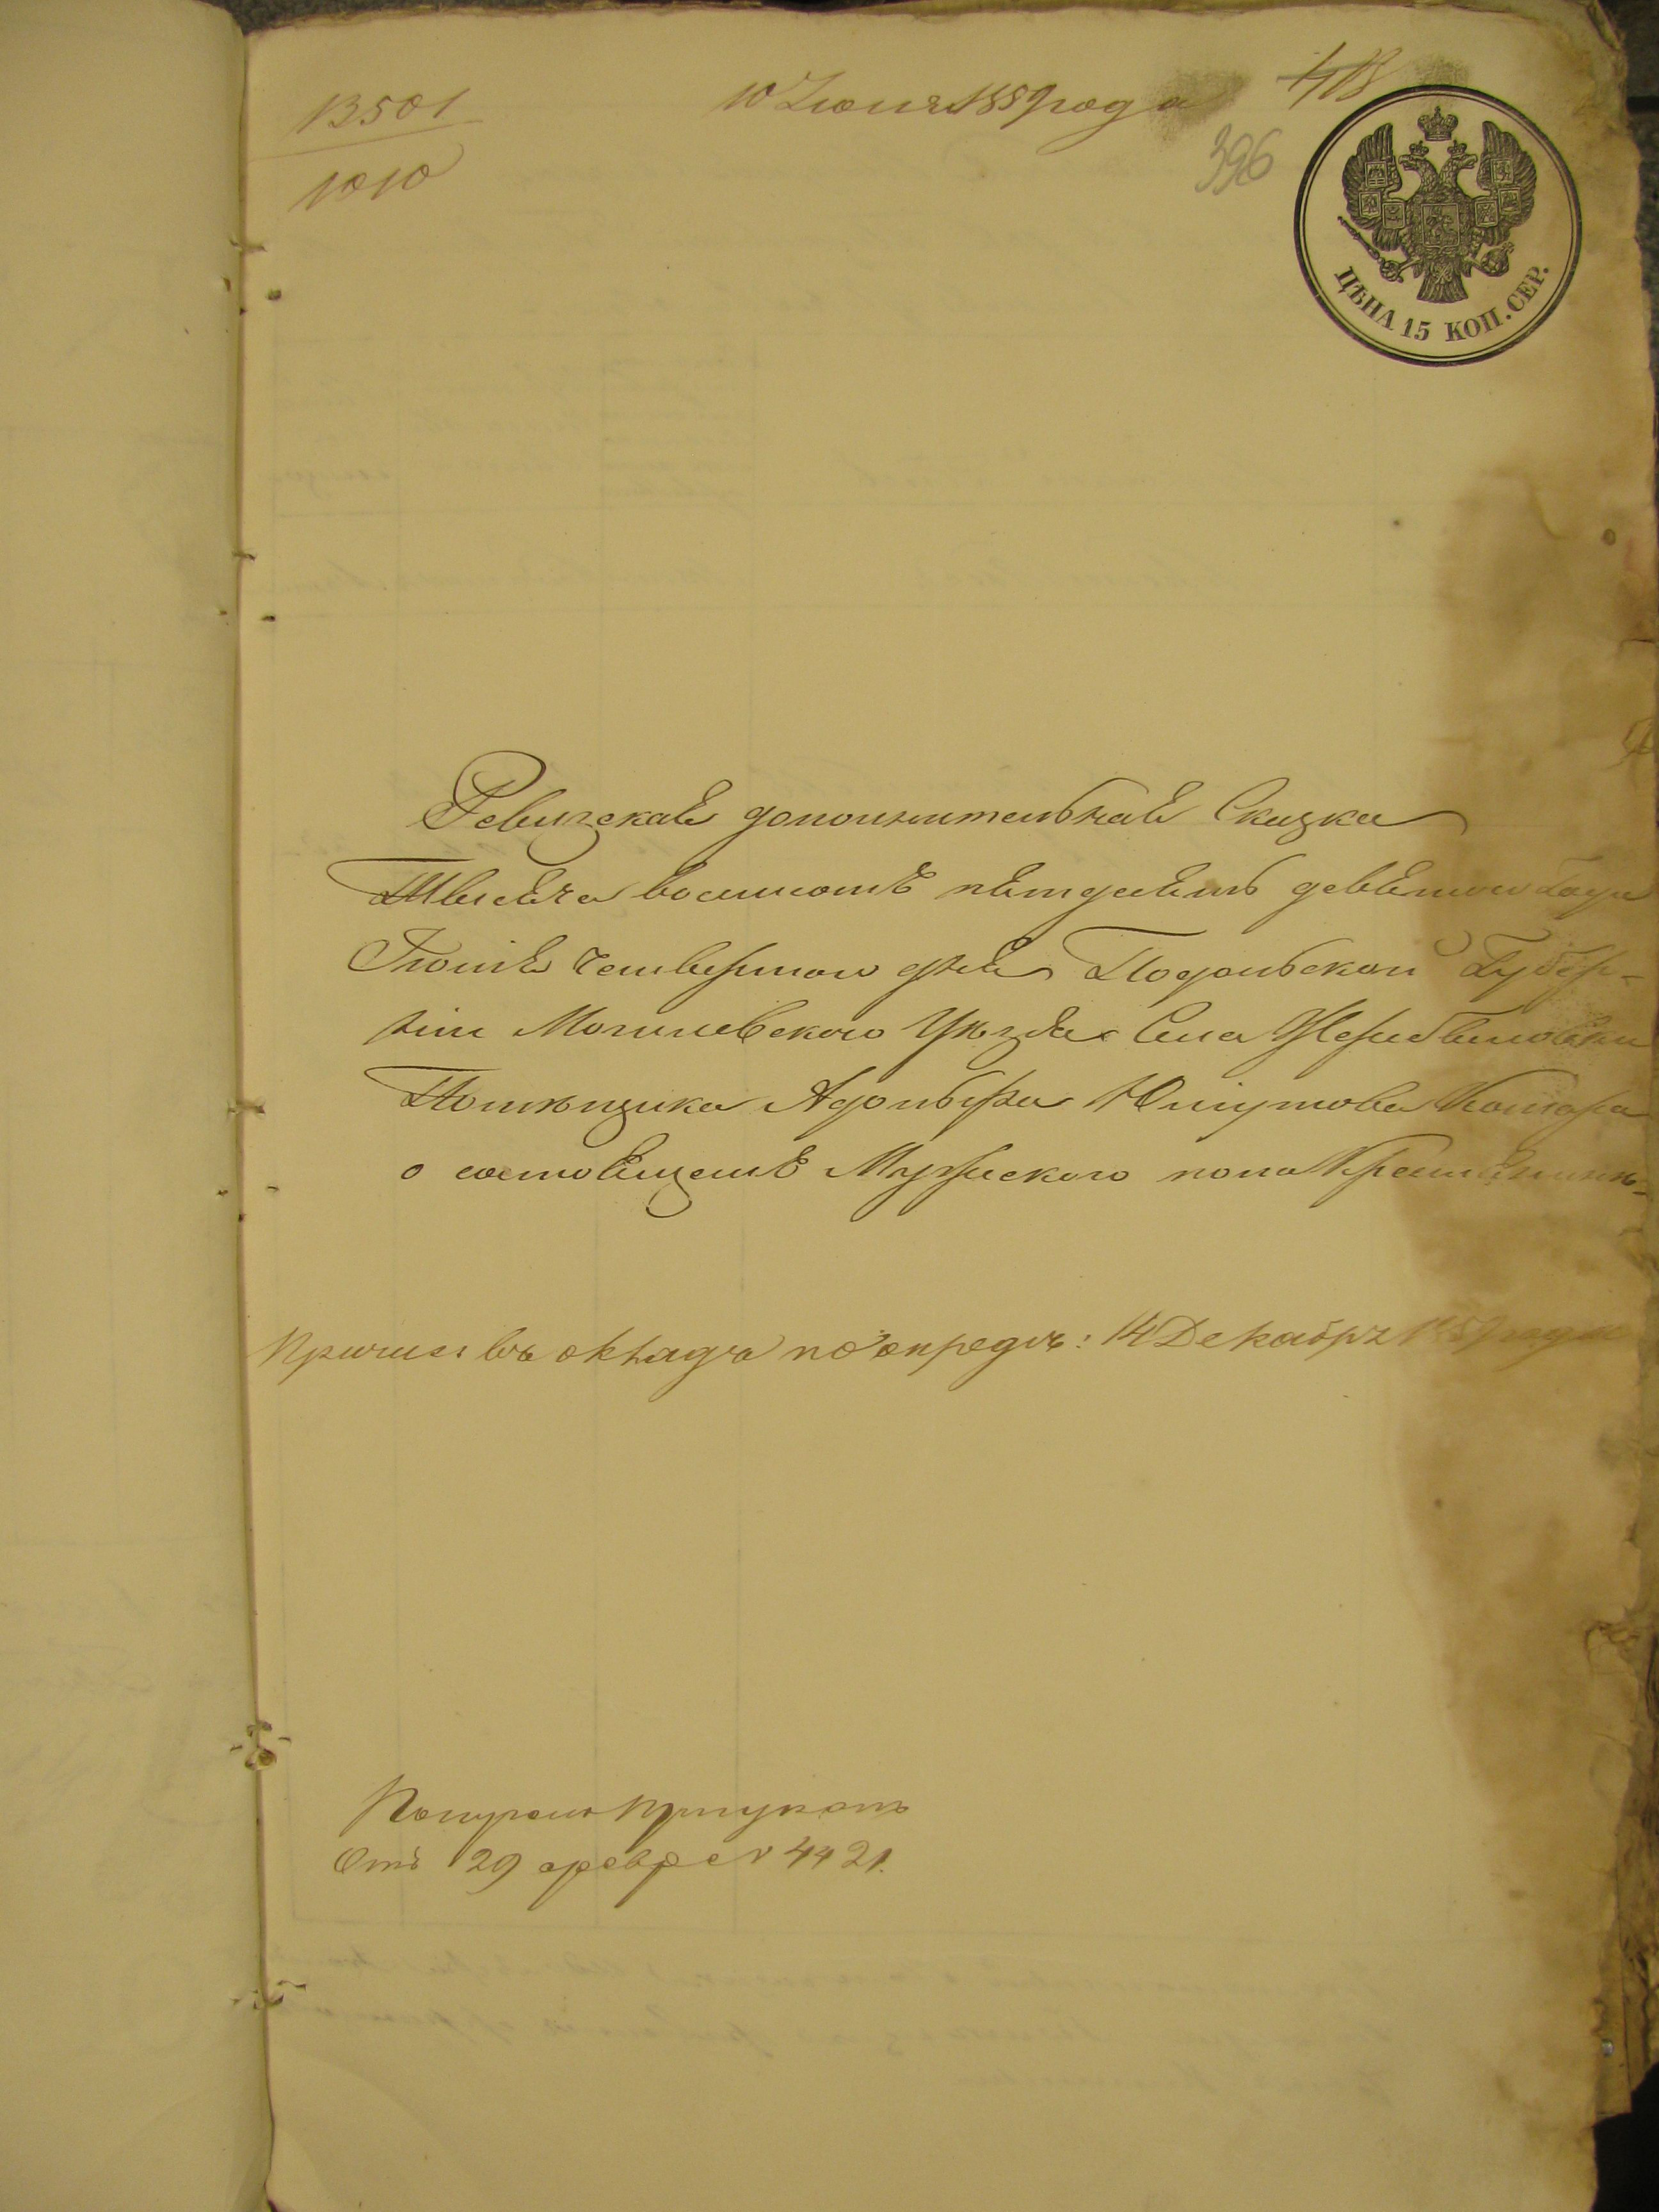 13501
1010
10 Июня 1859 года
418
396
ЦѢНА 15 КОП. СЕР.
Ревизская дополнительная Сказка
Тысяча восемьсотъ пятдесятъ девятого Года
Іюня четвертого дня Подольской Губер-
ніи Могилевского Уѣзда Села
Помѣщика Адольфа Комара
о состоящемъ Мужеского пола
Причис: въ окладъ по опредѣ: 14 Декабря 1859 года
Отъ 29 февр 4421.